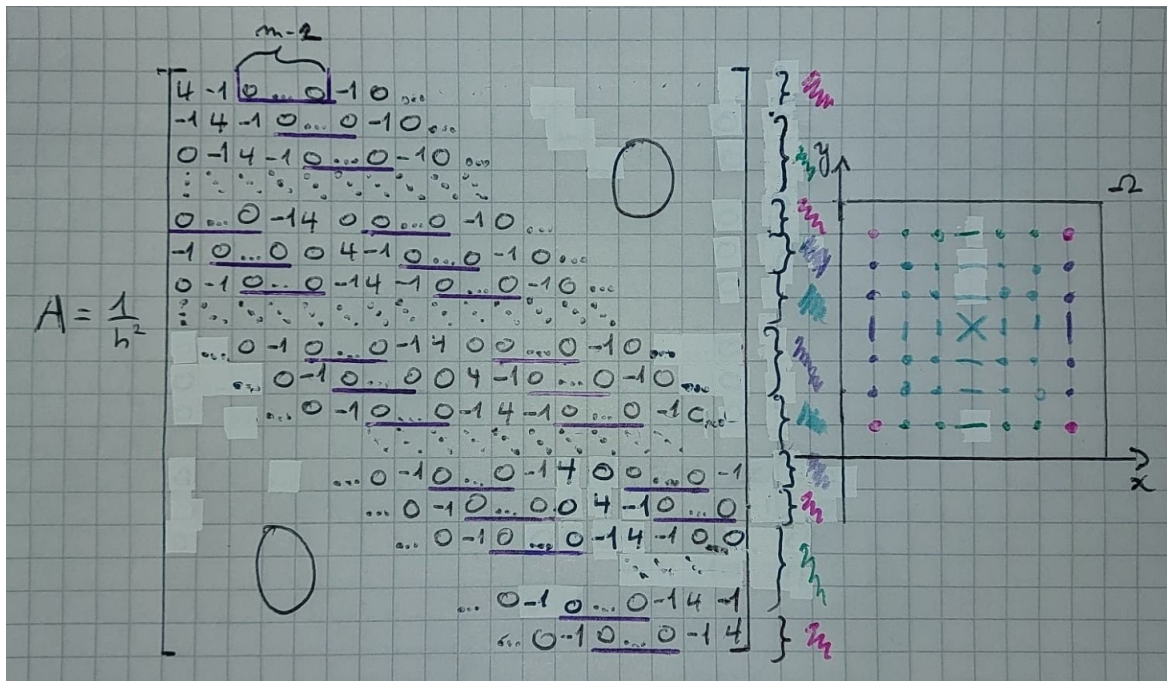 m-2
4 -1 0 ... 0 -1 0 ...
-1 4 -1 0 ... 0 -1 0 ...
0 -1 4 -1 0 ... 0 -1 0 ...
0 ... 0 -1 4 0 0 ... 0 -1 0 ...
-1 0 ... 0 0 4 -1 0 ... 0 -1 0 ...
0 -1 0 ... 0 -1 4 -1 0 ... 0 -1 0 ...
A = 1/h²
... 0 -1 0 ... 0 -1 4 0 0 ... 0 -1 0 ...
... 0 -1 0 ... 0 0 4 -1 0 ... 0 -1 0 ...
... 0 -1 0 ... 0 -1 4 -1 0 ... 0 -1
... 0 -1 0 ... 0 -1 4 0 0 ... 0 -1
... 0 -1 0 ... 0 0 4 -1 0 ... 0
... 0 -1 0 ... 0 -1 4 -1 0 ... 0
... 0 -1 0 ... 0 -1 4 -1
... 0 -1 0 ... 0 -1 4
0
0
y
Ω
x